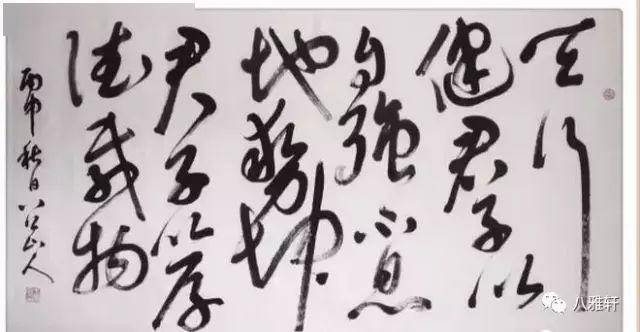 天行
健君子以
自強不息
地勢坤
君子以厚
德載物
丙申秋日八公山人
八雅轩